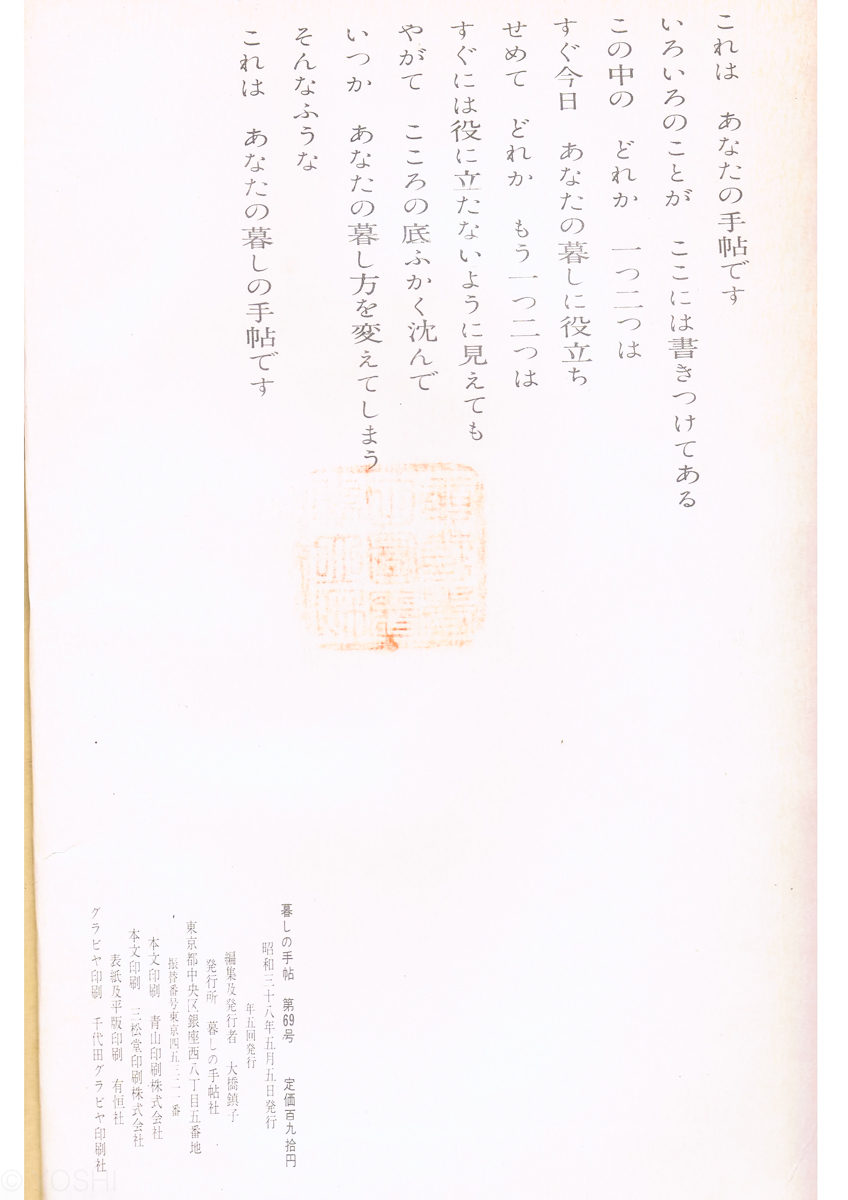 これは　あなたの手帖です
いろいろのことが　ここには書きつけてある
この中の　どれか　一つ二つは
すぐ今日　あなたの暮しに役立ち
せめて　どれか　もう一つ二つは
すぐには役に立たないように見えても
やがて　こころの底ふかく沈んで
いつか　あなたの暮し方を変えてしまう
そんなふうな
これは　あなたの暮しの手帖です
暮しの手帖　第69号　定価百九拾円
昭和三十八年五月五日発行
年五回発行
編集及発行者　大橋鎮子
発行所　暮しの手帖社
東京都中央区銀座西八丁目五番地
振替番号東京四五三二一番
本文印刷　青山印刷株式会社
本文印刷　三松堂印刷株式会社
表紙及平版印刷　有恒社
グラビヤ印刷　千代田グラビヤ印刷社
© TOSHI